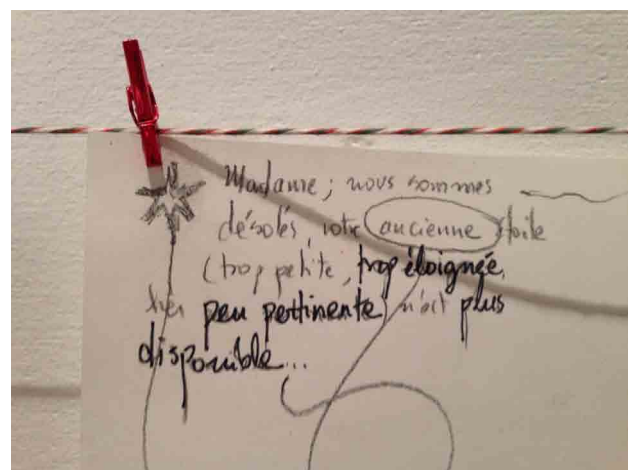 Madame; nous sommes
désolés, votre ancienne étoile
(trop petite, trop éloignée,
très peu pertinente) n'est plus
disponible...